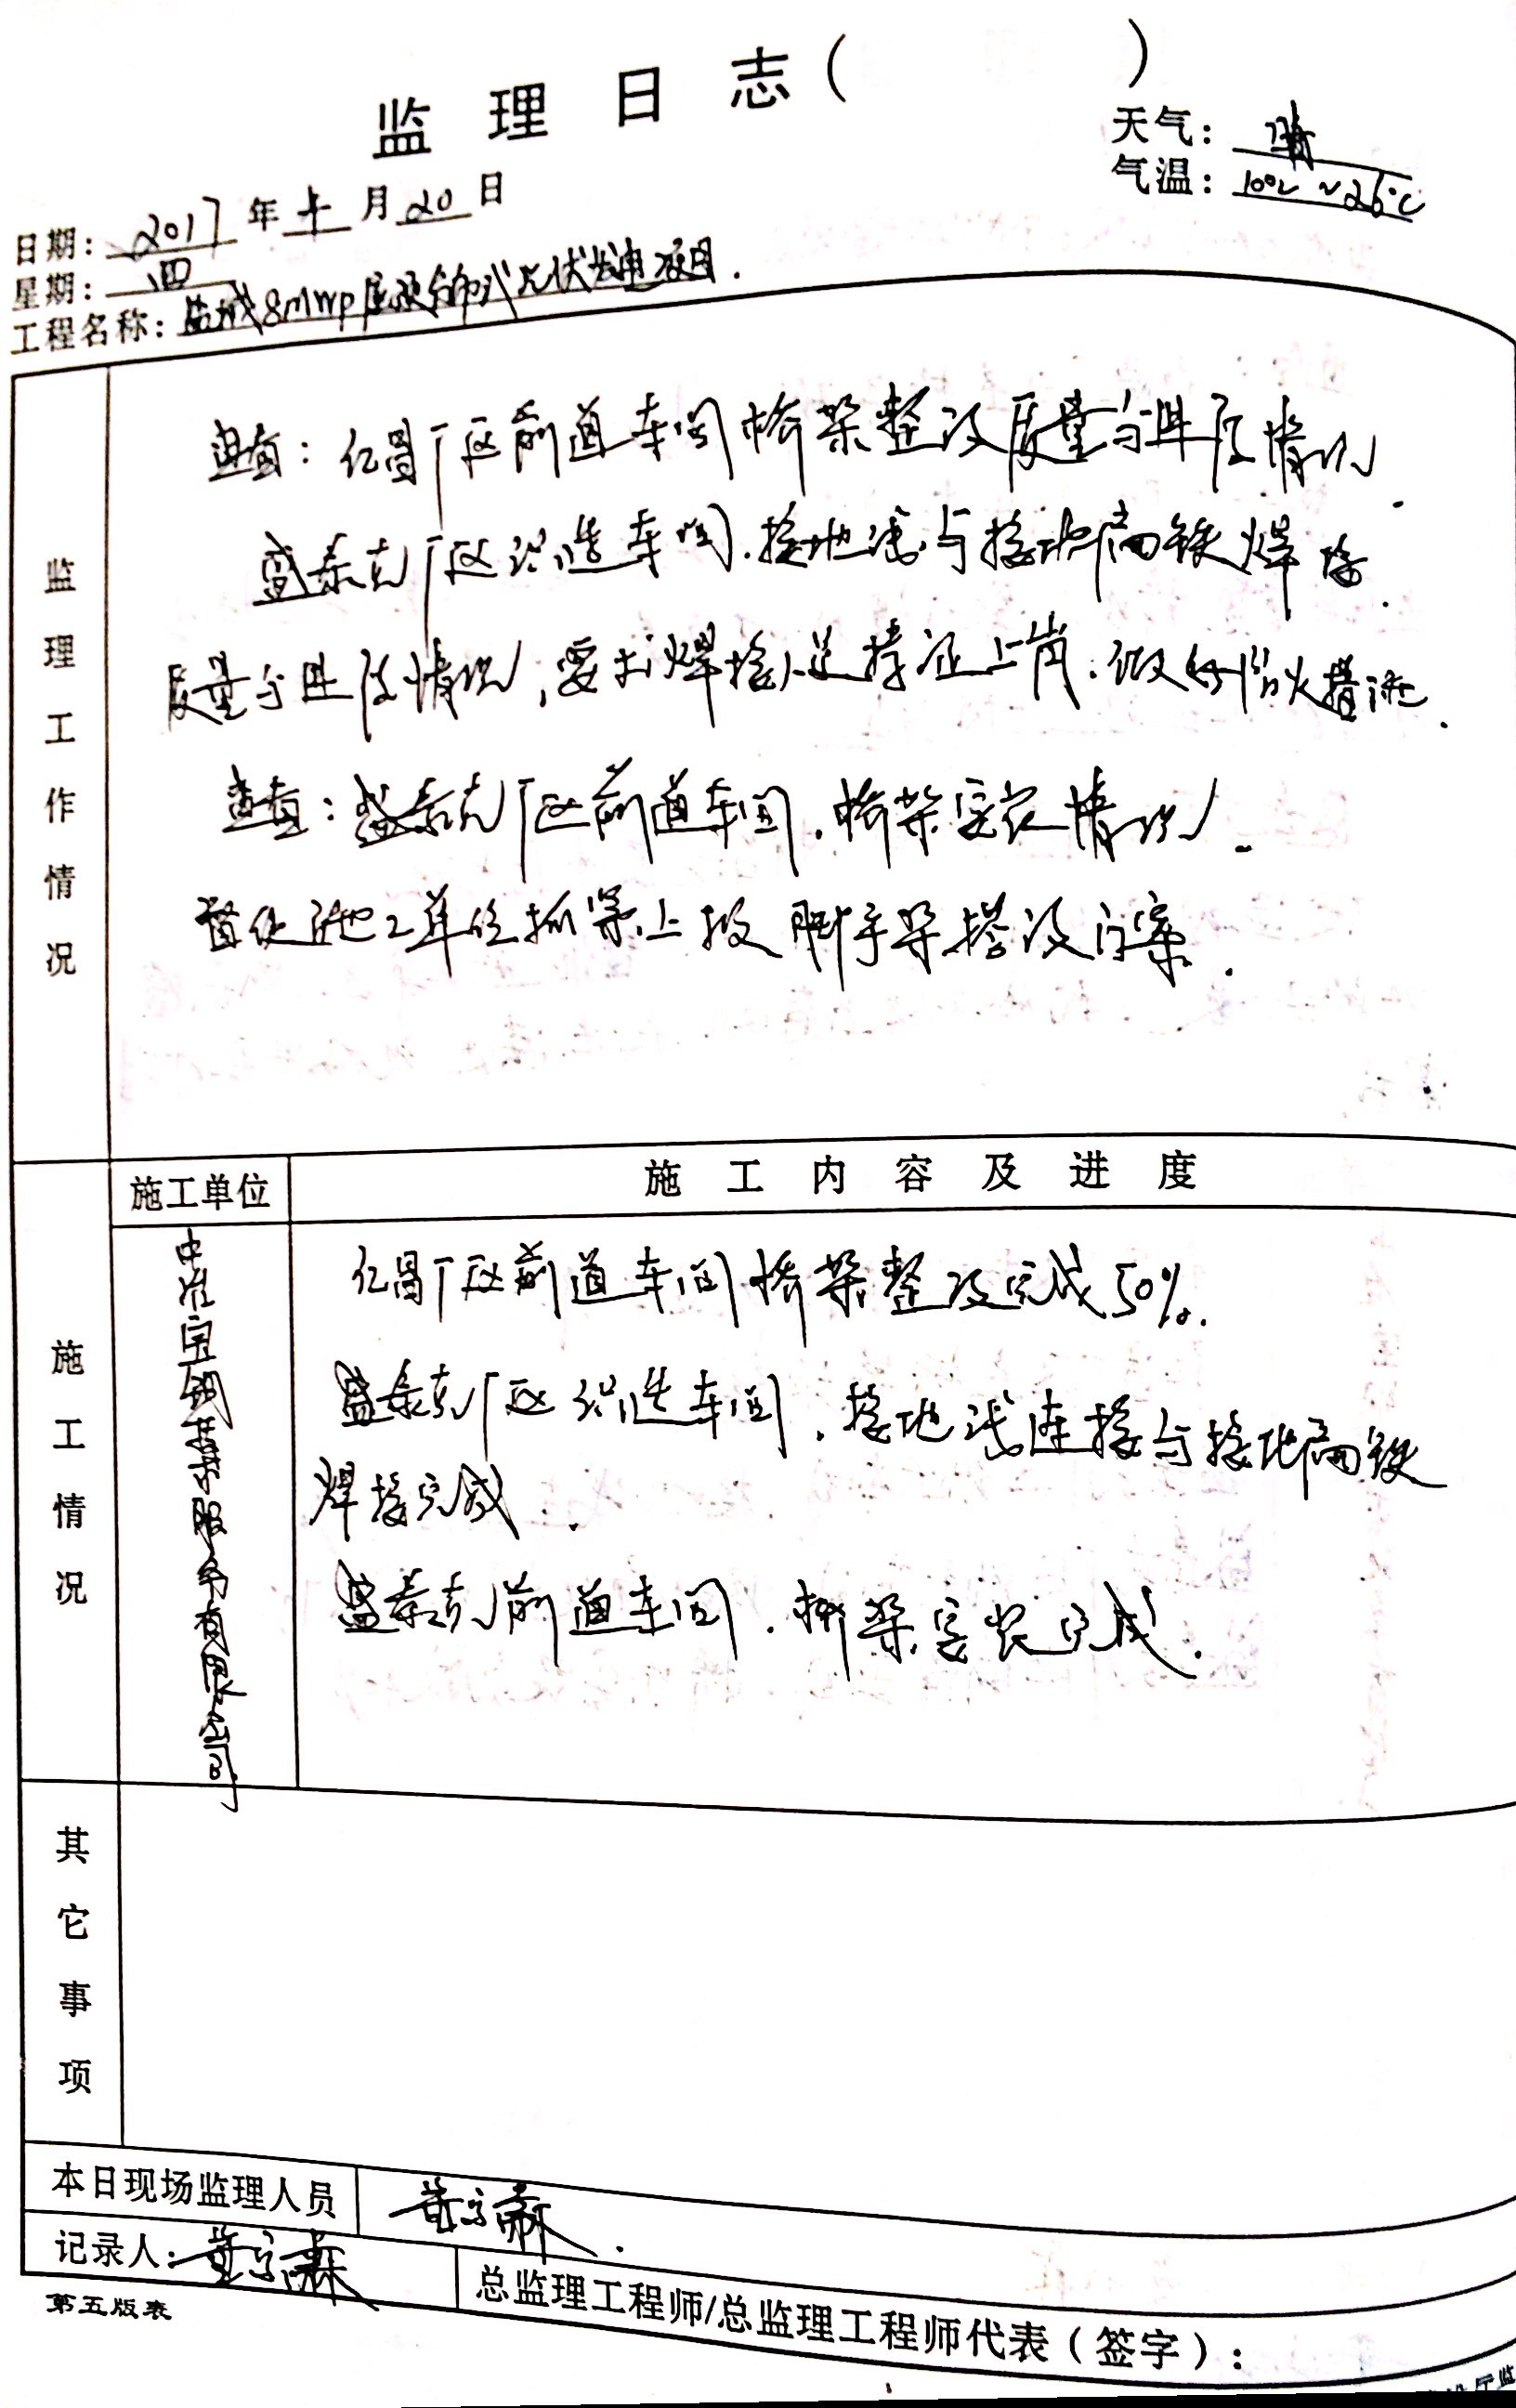 监理日志( )
天气: 晴
气温: 10℃~26℃
日期: 2017年 月20日
星期: 四
工程名称: 盐城8MWp屋顶分布式光伏发电项目.
监理工作情况
巡查: 亿昌厂区前道车间桥架整改质量与进度情况.
盛泰克厂区织造车间.接地线与接地扁铁焊接.
质量与进度情况,要求焊接人员持证上岗.做好防火措施.
查看: 盛泰克厂区前道车间.桥架安装情况.
督促施工单位抓紧上报脚手架搭设方案.
施工情况
施工单位
施工内容及进度
中淮宝钢 服务有限公司.
亿昌厂区前道车间桥架整改完成50%.
盛泰克厂区织造车间.接地线连接与接地扁铁
焊接完成.
盛泰克前道车间.桥架安装完成.
其它事项
本日现场监理人员
记录人:
总监理工程师/总监理工程师代表(签字):
第五版表
厅监